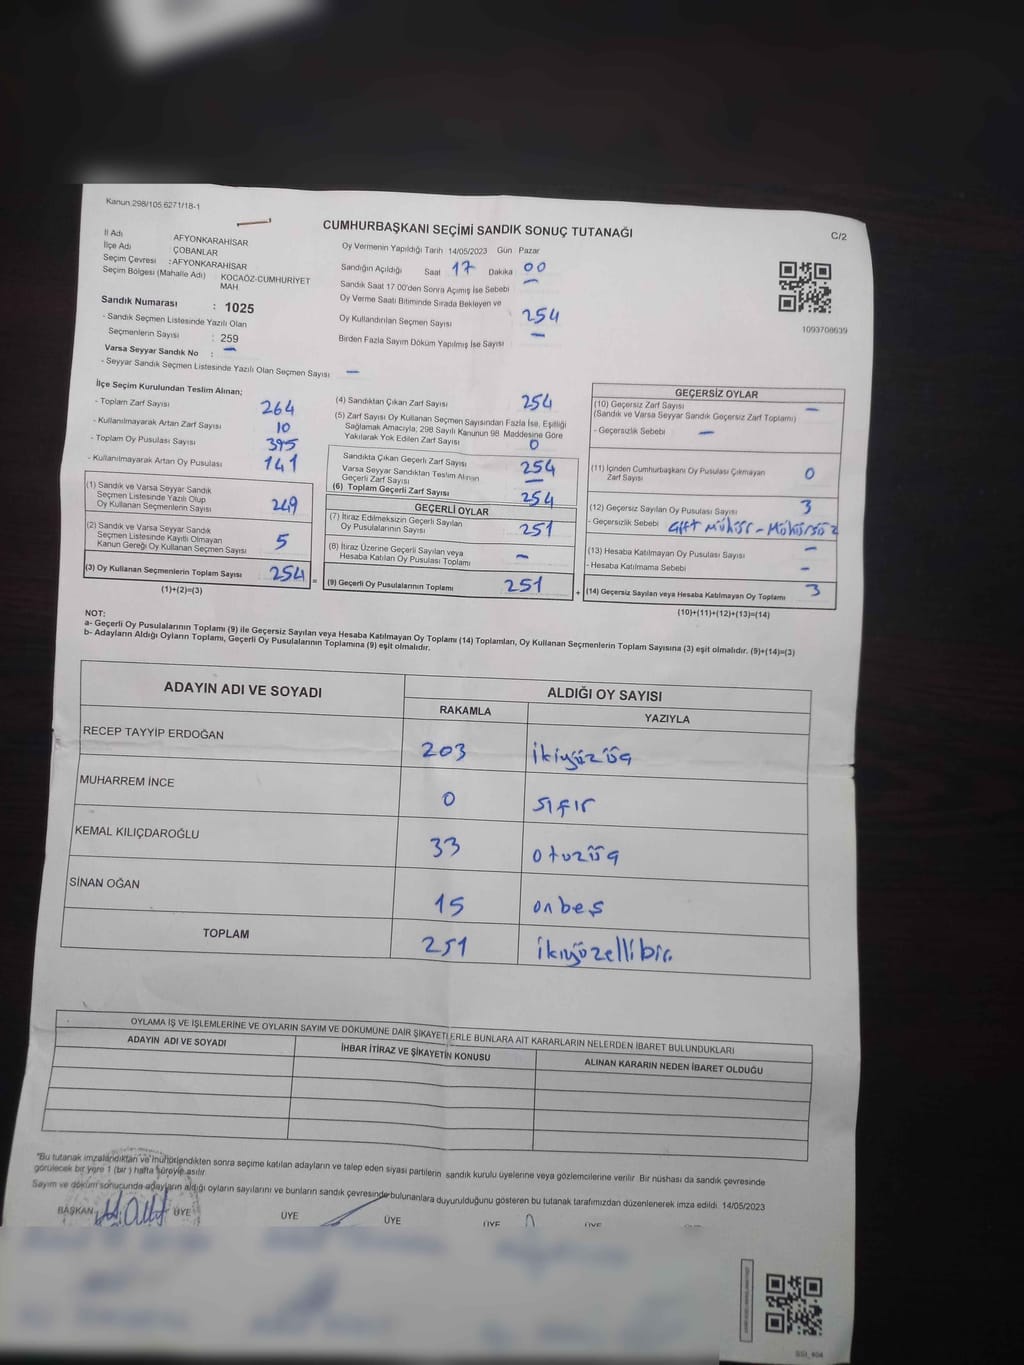 Kanun 298/105 6271/18-1
CUMHURBAŞKANI SEÇİMİ SANDIK SONUÇ TUTANAĞI
C/2
İl Adı AFYONKARAHİSAR
İlçe Adı ÇOBANLAR
Seçim Çevresi : AFYONKARAHİSAR
Seçim Bölgesi (Mahalle Adı) KOCAÖZ-CUMHURİYET
MAH
Sandık Numarası : 1025
- Sandık Seçmen Listesinde Yazılı Olan
Seçmenlerin Sayısı : 259
Varsa Seyyar Sandık No : —
- Seyyar Sandık Seçmen Listesinde Yazılı Olan Seçmen Sayısı —
Oy Vermenin Yapıldığı Tarih 14/05/2023 Gün Pazar
Sandığın Açıldığı Saat 17 Dakika 00
Sandık Saat 17.00'den Sonra Açımış İse Sebebi —
Oy Verme Saati Bitiminde Sırada Bekleyen ve
Oy Kullandırılan Seçmen Sayısı 254
Birden Fazla Sayım Döküm Yapılmış İse Sayısı —
1093708639
İlçe Seçim Kurulundan Teslim Alınan;
- Toplam Zarf Sayısı 264
- Kullanılmayarak Artan Zarf Sayısı 10
- Toplam Oy Pusulası Sayısı 395
- Kullanılmayarak Artan Oy Pusulası 141
(1) Sandık ve Varsa Seyyar Sandık
Seçmen Listesinde Yazılı Olup
Oy Kullanan Seçmenlerin Sayısı 249
(2) Sandık ve Varsa Seyyar Sandık
Seçmen Listesinde Kayıtlı Olmayan
Kanun Gereği Oy Kullanan Seçmen Sayısı 5
(3) Oy Kullanan Seçmenlerin Toplam Sayısı 254 =
(1)+(2)=(3)
(4) Sandıktan Çıkan Zarf Sayısı 254
(5) Zarf Sayısı Oy Kullanan Seçmen Sayısından Fazla İse, Eşitliği
Sağlamak Amacıyla; 298 Sayılı Kanunun 98. Maddesine Göre
Yakılarak Yok Edilen Zarf Sayısı 0
Sandıkta Çıkan Geçerli Zarf Sayısı 254
Varsa Seyyar Sandıktan Teslim Alınan
Geçerli Zarf Sayısı —
(6) Toplam Geçerli Zarf Sayısı 254
GEÇERLİ OYLAR
(7) İtiraz Edilmeksizin Geçerli Sayılan
Oy Pusulasının Sayısı 251
(8) İtiraz Üzerine Geçerli Sayılan veya
Hesaba Katılan Oy Pusulası Toplamı —
(9) Geçerli Oy Pusulalarının Toplamı 251 +
GEÇERSİZ OYLAR
(10) Geçersiz Zarf Sayısı —
(Sandık ve Varsa Seyyar Sandık Geçersiz Zarf Toplamı)
- Geçersizlik Sebebi —
(11) İçinden Cumhurbaşkanı Oy Pusulası Çıkmayan
Zarf Sayısı 0
(12) Geçersiz Sayılan Oy Pusulası Sayısı 3
- Geçersizlik Sebebi Çift Mühür - Mühürsüz
(13) Hesaba Katılmayan Oy Pusulası Sayısı —
- Hesaba Katılmama Sebebi —
(14) Geçersiz Sayılan veya Hesaba Katılmayan Oy Toplamı 3
(10)+(11)+(12)+(13)=(14)
NOT:
a- Geçerli Oy Pusulalarının Toplamı (9) ile Geçersiz Sayılan veya Hesaba Katılmayan Oy Toplamı (14) Toplamları, Oy Kullanan Seçmenlerin Toplam Sayısına (3) eşit olmalıdır. (9)+(14)=(3)
b- Adayların Aldığı Oyların Toplamı, Geçerli Oy Pusulalarının Toplamına (9) eşit olmalıdır.
ADAYIN ADI VE SOYADI ALDIĞI OY SAYISI
RAKAMLA YAZIYLA
RECEP TAYYİP ERDOĞAN 203 ikiyüzüç
MUHARREM İNCE 0 sıfır
KEMAL KILIÇDAROĞLU 33 otuzüç
SİNAN OĞAN 15 onbeş
TOPLAM 251 ikiyüzellibir
OYLAMA İŞ VE İŞLEMLERİNE VE OYLARIN SAYIM VE DÖKÜMÜNE DAİR ŞİKAYETLERLE BUNLARA AİT KARARLARIN NELERDEN İBARET BULUNDUKLARI
ADAYIN ADI VE SOYADI İHBAR İTİRAZ VE ŞİKAYETİN KONUSU ALINAN KARARIN NEDEN İBARET OLDUĞU
"Bu tutanak imzalandıktan ve mühürlendikten sonra seçime katılan adayların ve talep eden siyasi partilerin sandık kurulu üyelerine veya gözlemcilerine verilir. Bir nüshası da sandık çevresinde
görülecek bir yere 1 (bir) hafta süreyle asılır.
Sayım ve döküm sonucunda adayların aldığı oyların sayılarını ve bunların sandık çevresinde bulunanlara duyurulduğunu gösteren bu tutanak tarafımızdan düzenlenerek imza edildi. 14/05/2023
BAŞKAN ÜYE ÜYE ÜYE ÜYE ÜYE